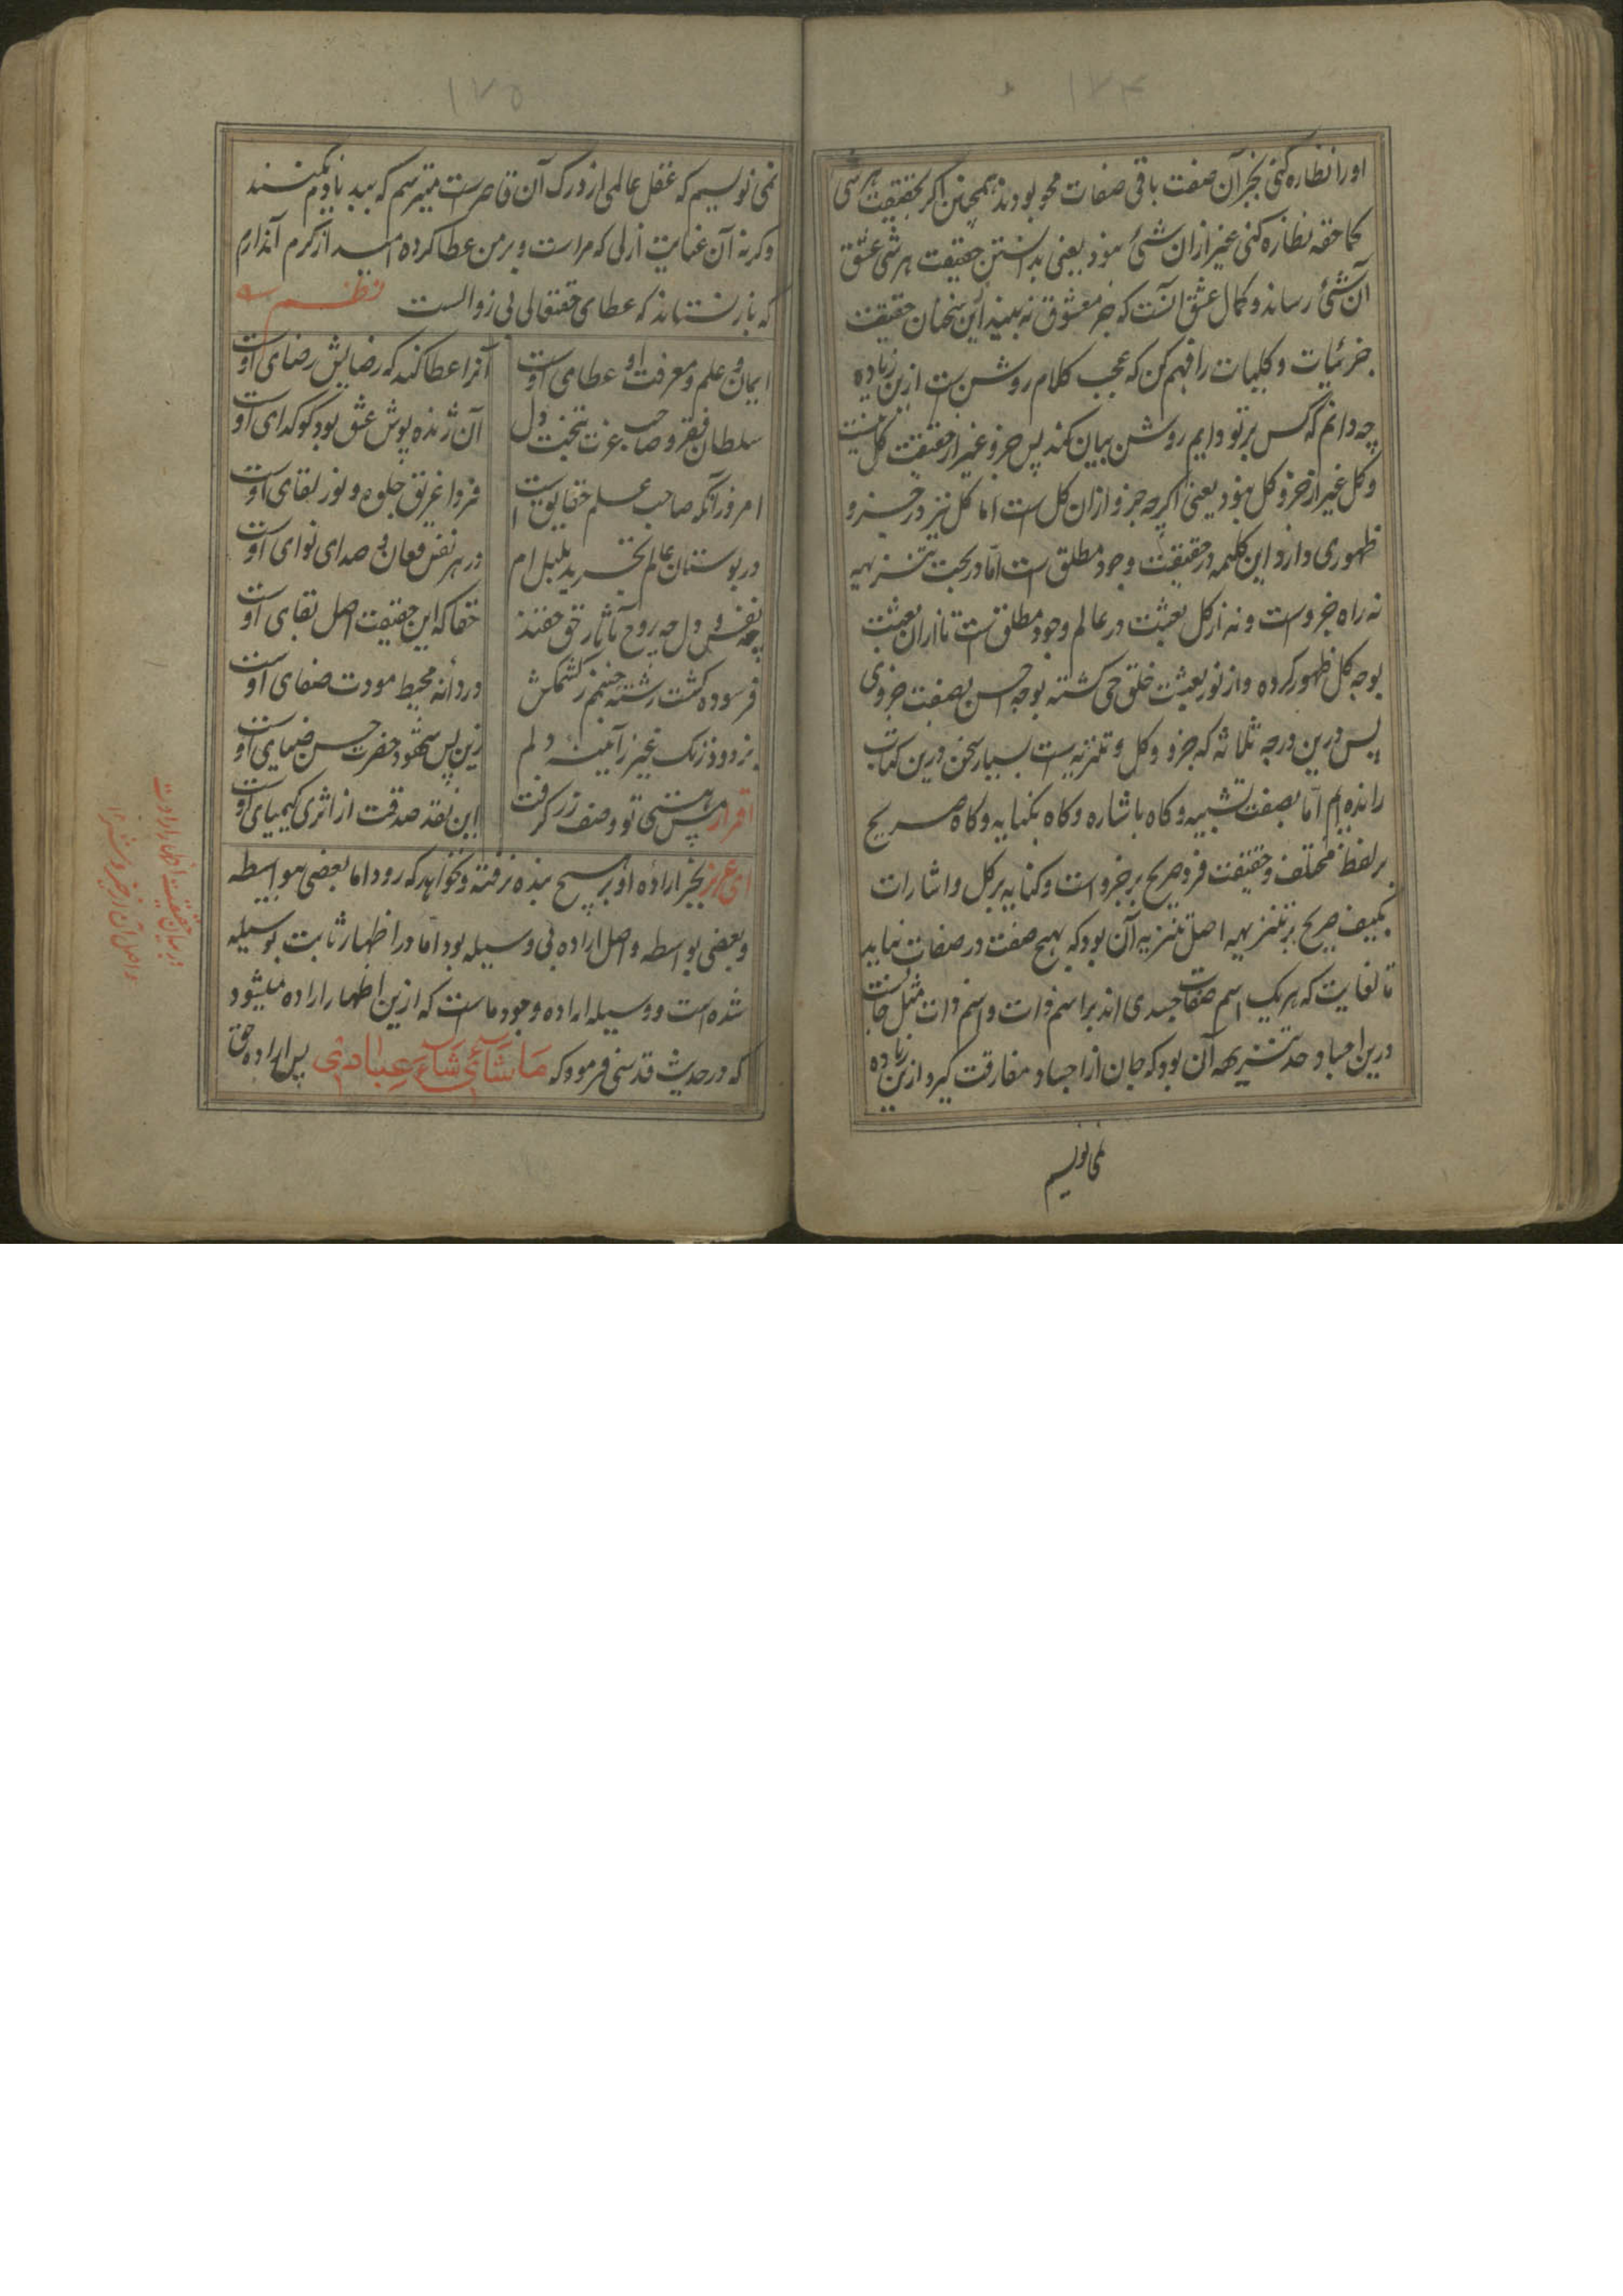 ۱۷۴
او را نظاره کنی بجز آن صفت باقی صفات محو بودند همچنین اگر بحقیقت هر شی
کما حقه نظاره کنی غیر از ان شئ نبود یعنی بدانستن حقیقت هر شی عشق
آن شئ رساند و کمال عشق آنست که جز معشوق نه بیند این سخنان حقیقت
جزئیات و کلیات را فهم کن که عجب کلام روشن ست ازین زیاده
چه دانم که کس بر تو دایم روشن بیان کند پس جزو غیر از حقیقت کل نیست
و کل غیر از جزو کل نبود یعنی اگرچه جزو ازان کل ست اما کل نیز در جزو
ظهوری دارد این کلیمه در حقیقت وجود مطلق ست اما در بحت تنزیهیه
نه راه جزوست و نه از کل بعثت در عالم وجود مطلق ست تا ازان بعثت
بوجه کل ظهور کرده و از نور بعثت خلق حی گشته بوجه احسن بصفت جزوی
پس درین درجه ثلاثه که جزو و کل و تنزیه ست بسیار سخن درین کتاب
رانده ایم اما بصفت تشبیه و کاه باشاره و کاه بکنایه و کاه صریح
بر لفظ مختلف و حقیقت فرد صریح بر جزو است و کنایه بر کل و اشارات
بکیف صریح بر تنزیهیه اصل تنزیه آن بود که بهیچ صفت در صفات نیاید
تا بغایت که هر یک اسم صفات جسدی اند بر اسم ذات و اسم ذات مثل جانست
درین اجساد و حد تنزیهه آن بود که جان از اجساد مفارقت گیرد ازین زیاده
نمی نویسم
۱۷۵
نمی نویسم که عقل عالمی از درک آن قاصرست میترسم که بید یادم نکنند
و کرنه آن عنایت ازلی که مراست و بر من عطا کرده امید از کرم آن دارم
که باز نستاند که عطای حقتعالی بی زوالست نظم
ایمان و علم و معرفت او عطای اوست آنرا عطا کند که رضایش رضای اوست
سلطان فقر و صاحب عزت بتخت دل آن ژنده پوش عشق بود کو گدای اوست
امروز آنکه صاحب علم حقایق است فردا غریق جلوه و نور لقای اوست
در بوستان عالم تجرید بلبل ام در هر نفس فغان بی صدای نوای اوست
چه نفس و دل چه روح بآثار حق حقند حقا که این حقیقت اصل بقای اوست
فرسوده کشت رشته جسم ز کشمکش دردانه محیط مودت صفای اوست
بزدود زنک غیر ز آئینه دلم زین پس شهود حضرت حسن ضیای اوست
اقرار مس هستی تو وصف زر گرفت این نقد صدقت از اثری کیمیای اوست
ای عزیز بجز اراده او بر هیچ بنده نرفته و نخواهد که رود اما بعضی بیواسطه
و بعضی بواسطه و اصل اراده بی وسیله بود اما در اظهار ثابت بوسیله
شده است و وسیله اراده وجود ماست که ازین اظهار اراده میشود
که در حدیث قدسی فرمود که مَا شَائِی شَاءَ عِبادی پس اراده حق
در بیان حقیقت اظهار ارادت
و اصل آن از خیر و شر